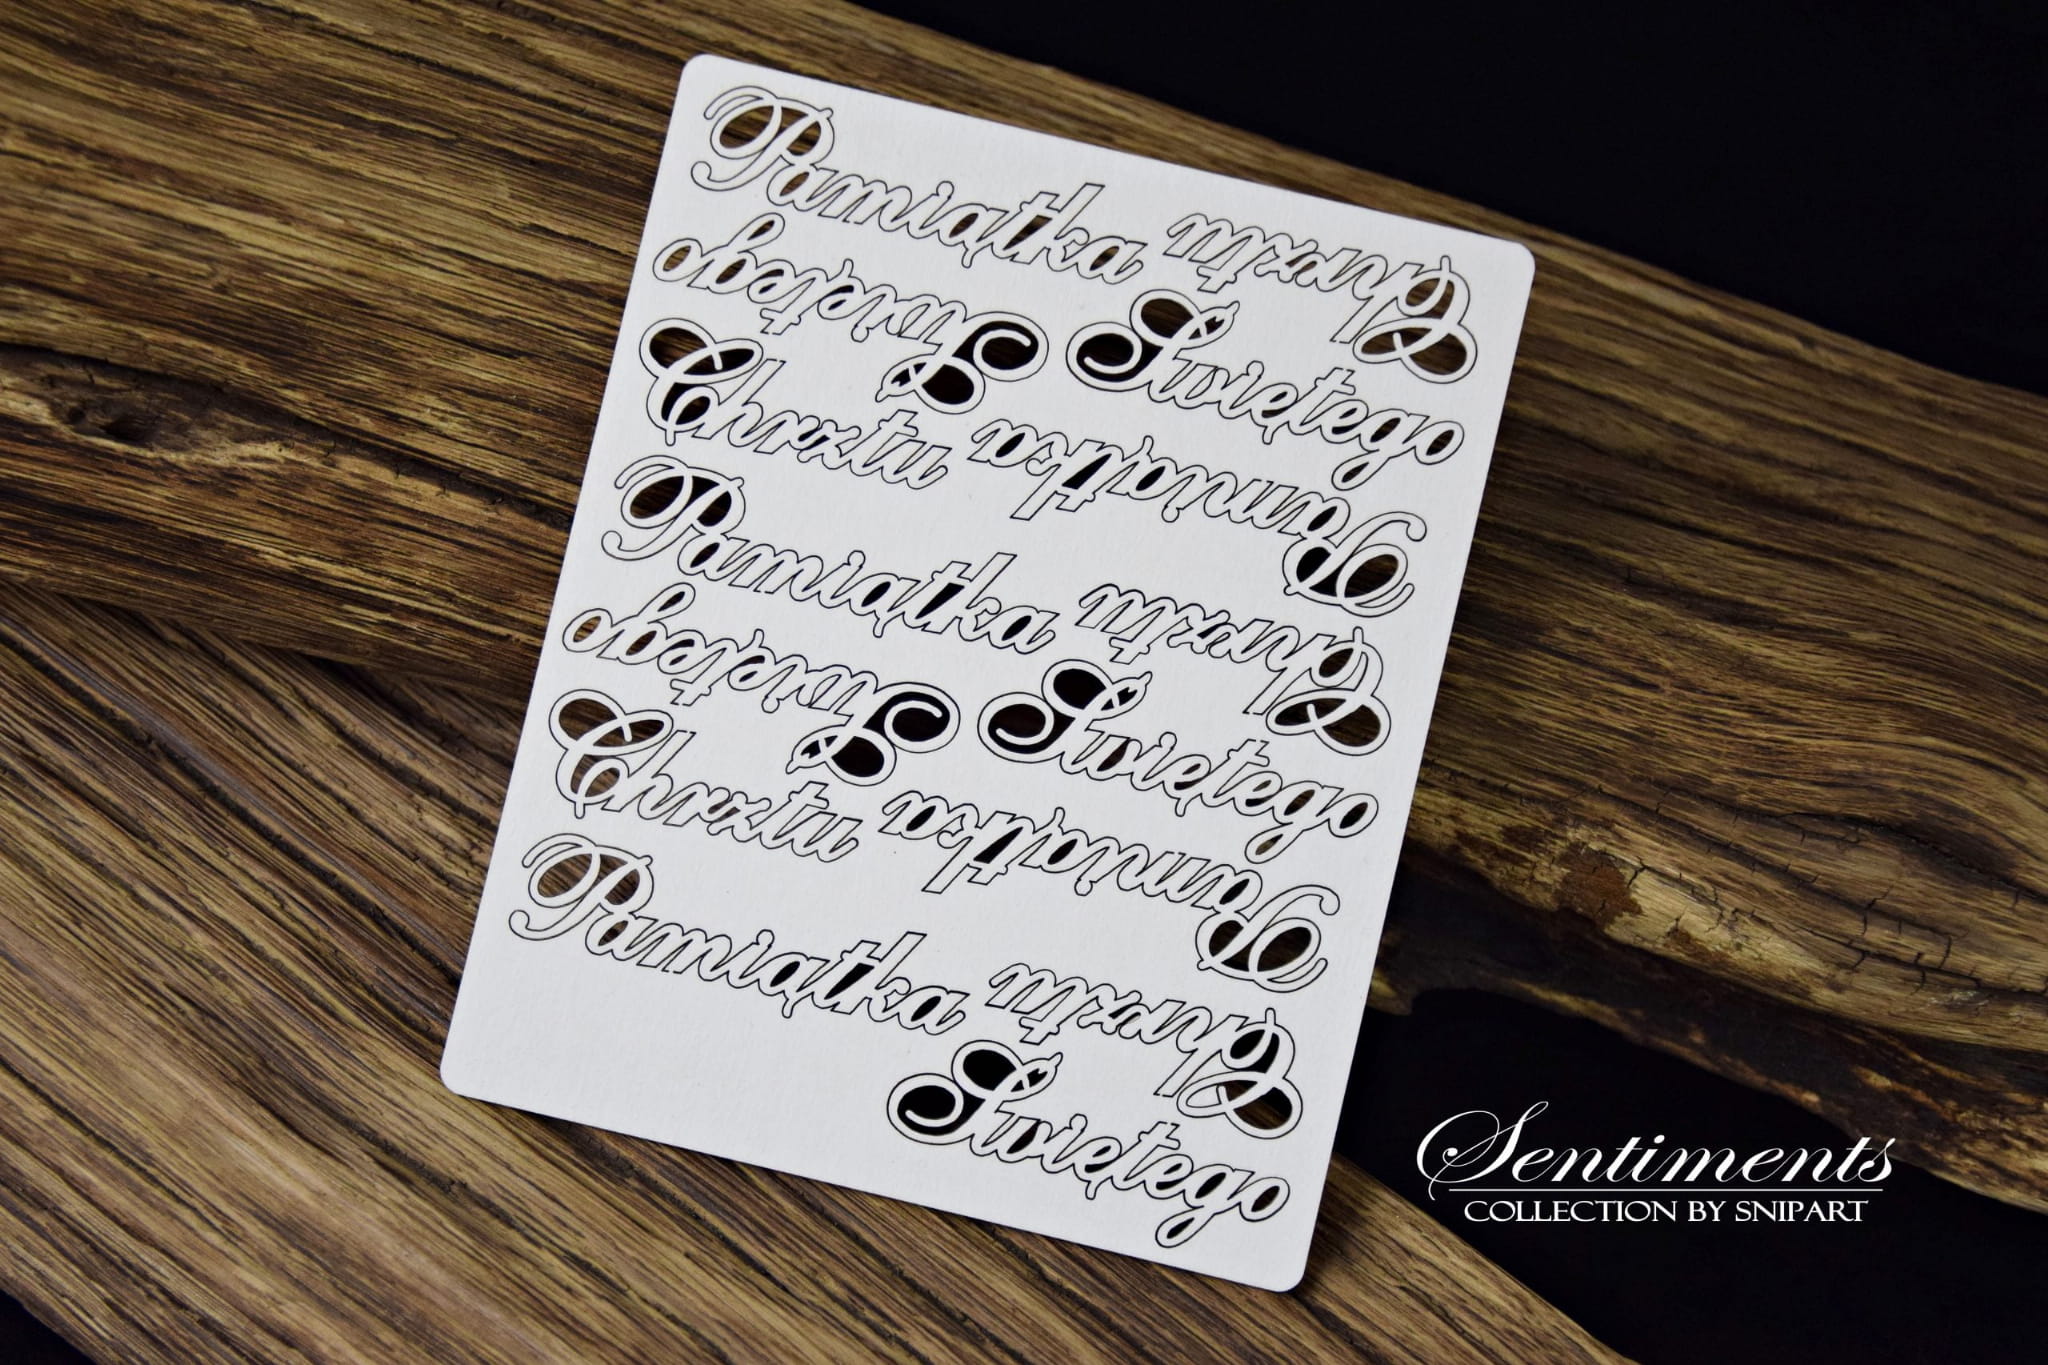 Pamiątka Chrztu
Świętego Świętego
Chrztu Pamiątka
Pamiątka Chrztu
Świętego Świętego
Chrztu Pamiątka
Pamiątka Chrztu
Świętego
Sentiments
COLLECTION BY SNIPART